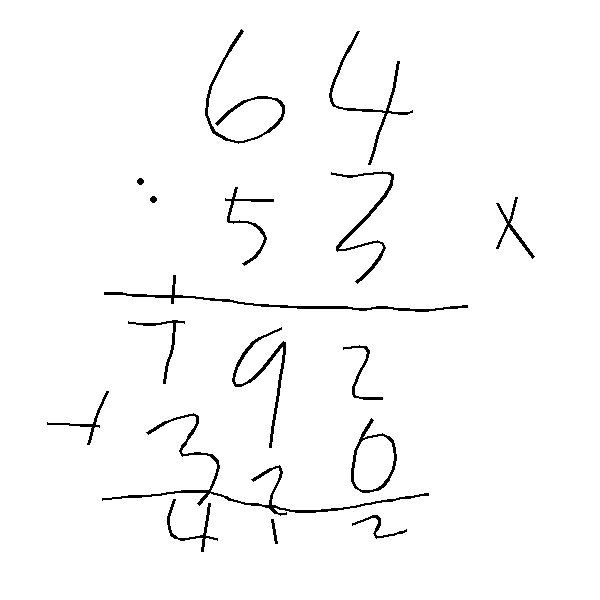 64
53 x
792
+ 320
412